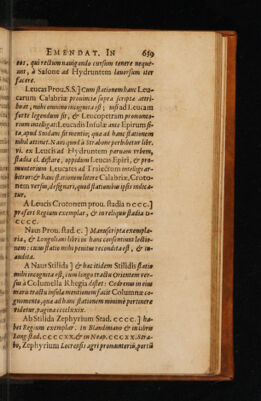 EMENDAT. IN 659
eos, qui rectum navigando cursum tenere nequeunt, à Sasone ad Hydruntem lævorsum iter
facere.
Leucas Prou. S. S.] Cum stationem hanc Leucarum
Calabriæ provinciæ supra scripta attribuat,
mihi omnino incognita est; ins ad Leucam
forte legendum sit, & Leucopetram promontorium
intelligat. Leucadis Insulæ ante Epirum sita,
apud Strabonem sit mentio; qua ad hanc stationem
nihil attinet. Nam quod à Strabone perhibetur libr.
vi. ex Leucis ad Hydruntem parvum urbem,
stadia cl. distare; oppidum Leucas Epiri, & promuntorium
Leucates ad Traiectum intelligat
or: & hanc stationem litore Calabriæ, Crotonem
versus, designari, quod stationibus ipsis indicatur.
A Leucis Crotonem prou. stadia Dcccc.]
præfert Regium exemplar, & in reliquis stadia D
cccc.
Naun Prou. stad. c.] Manuscripta exemplaria,
& Longoliani libri in hanc consentiunt lectionem:
cum statio mihi penitus recondita est, & inaudita.
A Naun Stilida] & hæc itidem Stilidis statio
mihi incognita est, cum longo tractu Crotonem versus
à Columella Rhegia distet: Cedreno in eius
maris tractu insulæ mentionem facit Columnæ cognomento,
quæ ad hanc stationem minimè pertinere
videtur, pagina cccclxxix.
Ab Stilida Zephyrium Stad. cccc.] habet
Regium exemplar. in Blandiniano & in libris
Long. stad. ccccxx. & in Neap. cccxx. Strabo,
Zephyrium Locrensis agri promontorii, portū